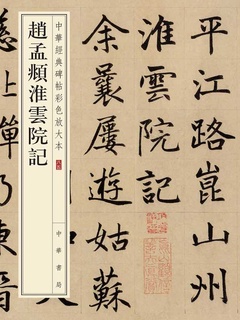 平江路崑山州
淮雲院記
余曩屢遊姑蘇
中華經典碑帖彩色放大本
趙孟頫淮雲院記
中華書局